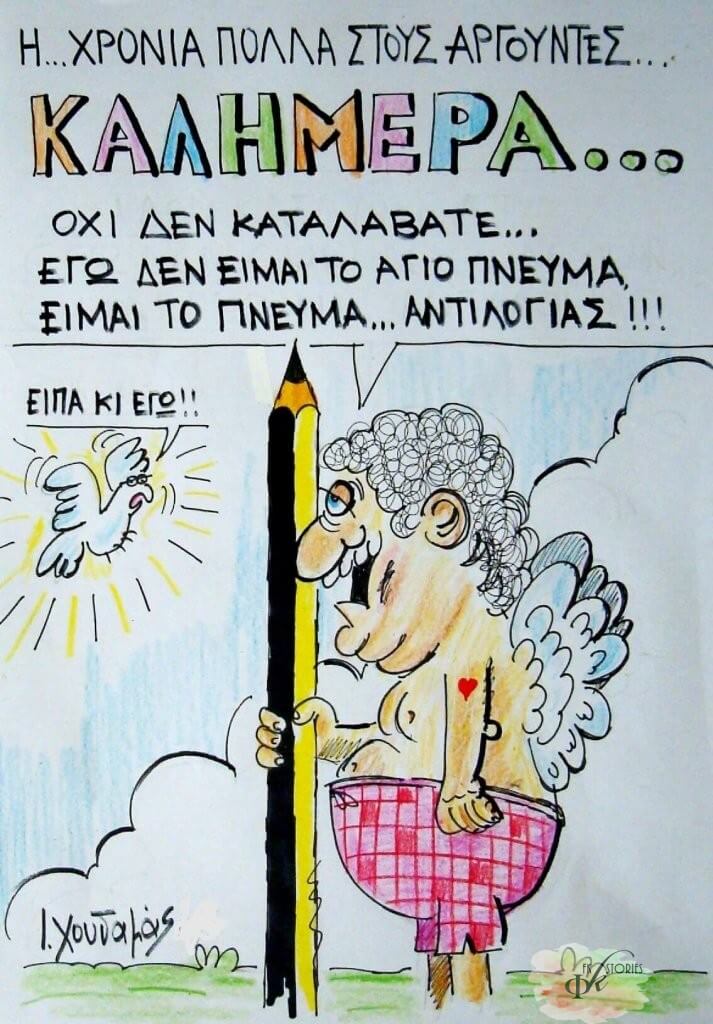 Η...ΧΡΟΝΙΑ ΠΟΛΛΑ ΣΤΟΥΣ ΑΡΓΟΥΝΤΕΣ...
ΚΑΛΗΜΕΡΑ...
ΟΧΙ ΔΕΝ ΚΑΤΑΛΑΒΑΤΕ...
ΕΓΩ ΔΕΝ ΕΙΜΑΙ ΤΟ ΑΓΙΟ ΠΝΕΥΜΑ,
ΕΙΜΑΙ ΤΟ ΠΝΕΥΜΑ... ΑΝΤΙΛΟΓΙΑΣ!!!
ΕΙΠΑ ΚΙ ΕΓΩ!!
Ι. Χουταμάς
STORIES